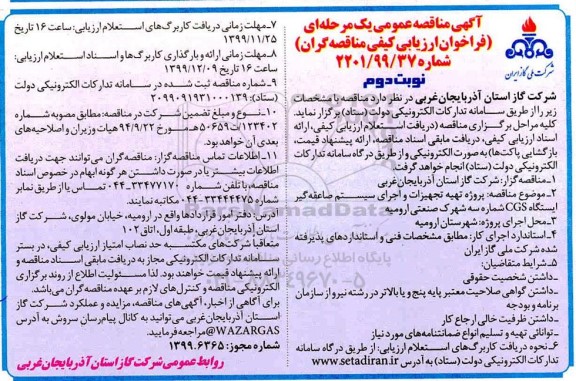 آگهی مناقصه عمومی یک مرحله‌ای
(فراخوان ارزیابی کیفی مناقصه گران)
شماره ۲۲۰۱/۹۹/۳۷
نوبت دوم
شرکت ملی گاز ایران
شرکت گاز استان آذربایجان‌غربی در نظر دارد مناقصه با مشخصات
زیر را از طریق سامانه تدارکات الکترونیکی دولت (ستاد) برگزار نماید.
کلیه مراحل برگزاری مناقصه (دریافت اسناد استعلام ارزیابی کیفی، ارائه
اسناد ارزیابی کیفی، دریافت مابقی اسناد مناقصه، ارائه پیشنهاد قیمت،
بازگشایی پاکت‌ها) به صورت الکترونیکی و از طریق درگاه سامانه تدارکات
الکترونیکی دولت (ستاد) انجام خواهد گرفت.
۱-مناقصه‌گزار: شرکت گاز استان آذربایجان‌غربی
۲-موضوع مناقصه: پروژه تهیه تجهیزات و اجرای سیستم صاعقه‌گیر
ایستگاه CGS شماره سه شهرک صنعتی ارومیه
۳-محل اجرای پروژه: شهرستان ارومیه
۴-استاندارد اجرای کار: مطابق مشخصات فنی و استانداردهای پذیرفته
شده شرکت ملی گاز ایران
۵-شرایط متقاضیان:
-داشتن شخصیت حقوقی
-داشتن گواهی صلاحیت معتبر پایه پنج و یا بالاتر در رشته نیرو از سازمان
برنامه و بودجه
-داشتن ظرفیت خالی ارجاع کار
-توانائی تهیه و تسلیم انواع ضمانتنامه‌های مورد نیاز
۶-نحوه دریافت کاربرگ‌های استعلام ارزیابی: از طریق درگاه سامانه
تدارکات الکترونیکی دولت (ستاد) به آدرس www.setadiran.ir
۷-مهلت زمانی دریافت کاربرگ‌های استعلام ارزیابی: ساعت ۱۶ تاریخ
۱۳۹۹/۱۱/۲۵
۸-مهلت زمانی ارائه و بارگذاری کاربرگ‌ها و اسناد استعلام ارزیابی:
ساعت ۱۶ تاریخ ۱۳۹۹/۱۲/۰۹
۹-شماره مناقصه ثبت شده در سامانه تدارکات الکترونیکی دولت
(ستاد): ۲۰۹۹۰۹۱۹۳۱۰۰۰۱۳۹
۱۰-نوع و مبلغ تضمین شرکت در مناقصه: مطابق مصوبه شماره
۱۲۳۴۰۲/ت ۵۰۶۵۹ هـ مورخ ۹۴/۹/۲۲ هیات وزیران و اصلاحیه‌های
بعدی آن خواهد بود.
۱۱-اطلاعات تماس مناقصه گزار: مناقصه گران می توانند جهت دریافت
اطلاعات بیشتر یا در صورت داشتن هر گونه ابهام در خصوص اسناد
مناقصه با تلفن شماره ۳۳۴۷۷۱۷۰-۰۴۴ تماس یا از طریق نمابر
شماره ۳۳۴۴۴۴۷۵-۰۴۴ مکاتبه نمایند.
آدرس: دفتر امور قراردادها واقع در ارومیه، خیابان مولوی، شرکت گاز
استان آذربایجان‌غربی، طبقه اول، اتاق ۱۰۲
متعاقبا شرکت‌های مکتسبه حد نصاب امتیاز ارزیابی کیفی، در بستر
سامانه تدارکات الکترونیکی مجاز به دریافت مابقی اسناد مناقصه و
ارائه پیشنهاد قیمت خواهند بود. لذا مسئولیت اطلاع از روند برگزاری
الکترونیکی مناقصه و کنترل‌های لازم بر عهده مناقصه گران می‌باشد.
برای آگاهی از اخبار، آگهی‌های مناقصه، مزایده و عملکرد شرکت گاز
استان آذربایجان‌غربی می‌توانید به کانال پیام‌رسان سروش به آدرس
@WAZARGAS مراجعه فرمایید.
شماره مجوز: ۱۳۹۹.۶۳۶۵
روابط عمومی شرکت گاز استان آذربایجان غربی